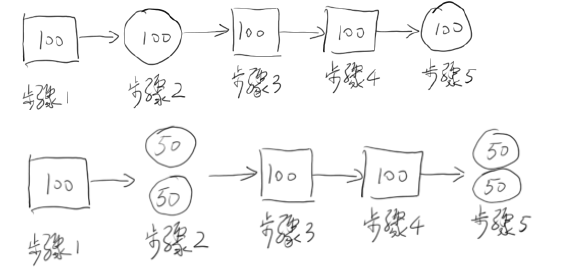 100 100 100 100 100
步骤1 步骤2 步骤3 步骤4 步骤5
50 50
100 100 100
50 50
步骤1 步骤2 步骤3 步骤4 步骤5